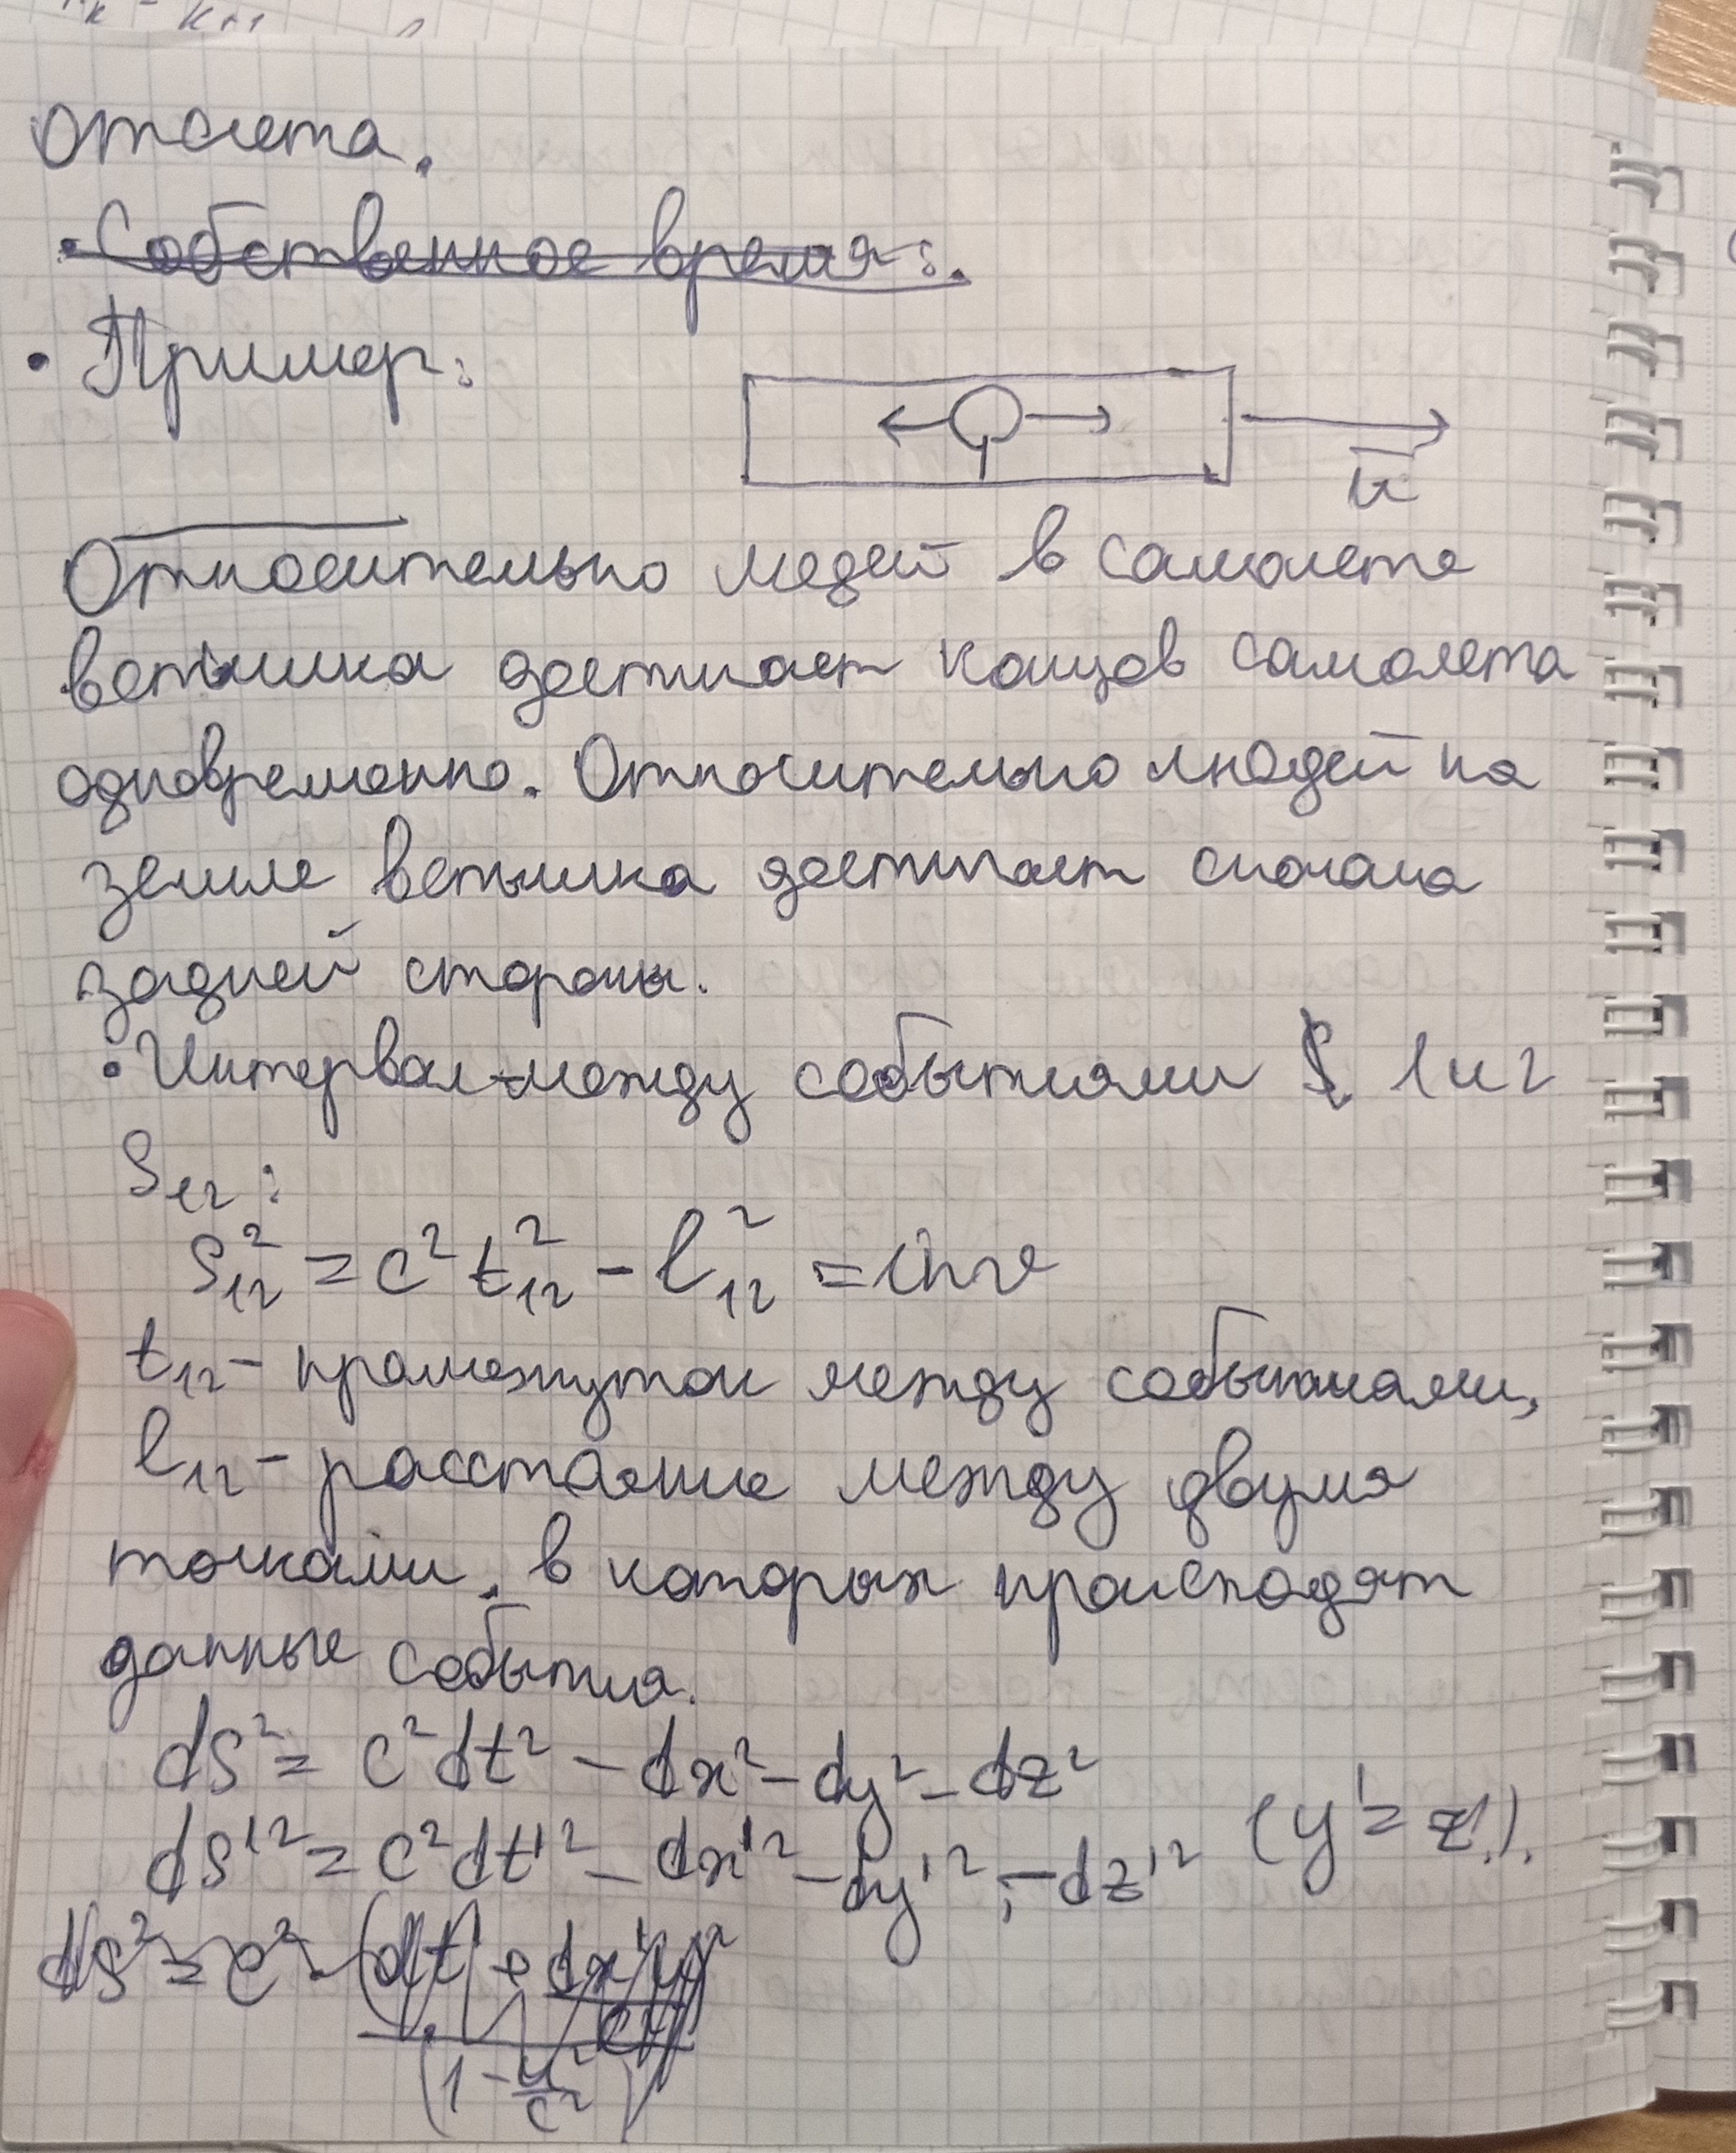 отсчета.
• Собственное время:.
• Пример:
u
Относительно людей в самолете
вспышка достигает концов самолета
одновременно. Относительно людей на
земле вспышка достигает сначала
задней стороны.
• Интервал-между событиями 1 и 2
S₁₂:
S₁₂² = c² t₁₂² - l₁₂² = inv
t₁₂ - промежуток между событиями,
l₁₂ - расстояние между двумя
точками, в которых происходят
данные события.
ds² = c²dt² - dx² - dy² - dz²
ds'² = c²dt'² - dx'² - dy'² - dz'² (y' = z').
ds² = c²
(1 - u²/c²)